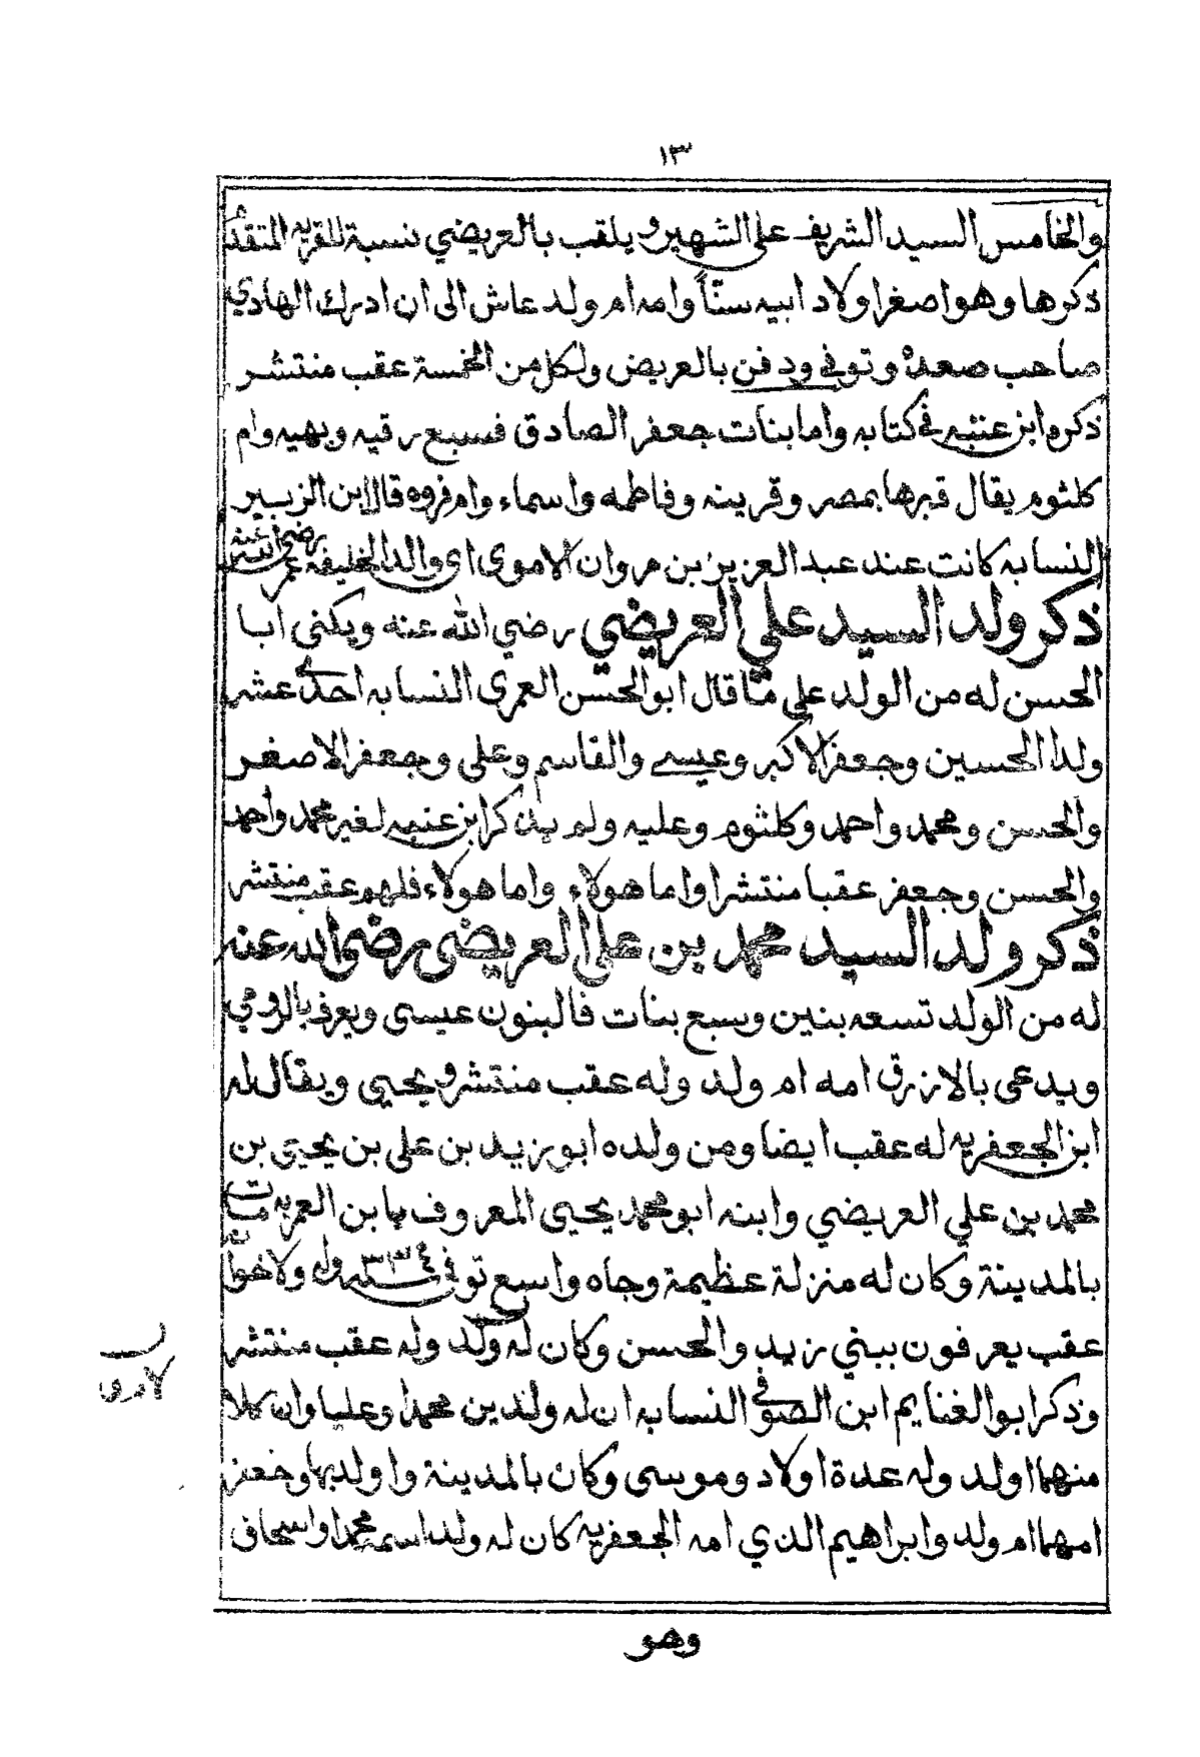 ١٣
والخامس السيد الشريف علي الشهير ويلقب بالعريضي نسبة للقريه المتقدم
ذكرها وهو اصغر اولاد ابيه سنّاً وامه ام ولد عاش الى ان ادرك الهادي
صاحب صعده وتوفي ودفن بالعريض ولكل من الخمسة عقب منتشر
ذكره ابن عنبه في كتابه واما بنات جعفر الصادق فسبع رقيه وبهيه وام
كلثوم يقال قبرها بمصر وقرينه وفاطمه واسماء وام فروه قال ابن الزبير
النسابه كانت عند عبد العزيز بن مروان الاموي اي والد الخليفه عمر رضي الله عنه
ذكر ولد السيد علي العريضي رضي الله عنه ويكنى ابا
الحسن له من الولد على ما قال ابو الحسن العمري النسابه احد عشر
ولدا الحسين وجعفر الاكبر وعيسى والقاسم وعلى وجعفر الاصغر
والحسن ومحمد واحمد وكلثوم وعليه ولم يذكر ابن عنبه لغير محمد واحمد
والحسن وجعفر عقبا منتشرا واما هولاء واما هولاء فلهم عقب منتشر
ذكر ولد السيد محمد بن علي العريضي رضي الله عنه
له من الولد تسعه بنين وسبع بنات فالبنون عيسى ويعرف بالرومي
ويدعى بالازرق امه ام ولد وله عقب منتشر ويحيى ويقال له
ابن الجعفريه له عقب ايضا ومن ولده ابو زيد بن على بن يحيى بن
محمد بن علي العريضي وابنه ابو محمد يحيى المعروف بابن العمريه مات
بالمدينة وكان له منزلة عظيمة وجاه واسع توفي سنة ٣٣٤ وله ولاخوته
عقب يعرفون ببني زيد والحسن وكان له ولد وله عقب منتشر
وذكر ابو الغنايم ابن الصوفي النسابه ان له ولدين محمدا وعليا وان كلا
منهما اولد وله عدة اولاد وموسى وكان بالمدينة واولد بها وجعفر
امهما ام ولد وابراهيم الذي امه الجعفريه كان له ولد اسمه محمد واسحاق
وهو